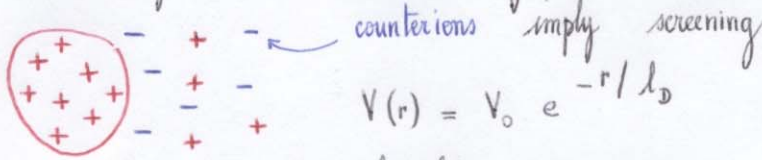 counterions imply screening
V(r) = V₀ e^{-r/l_D}